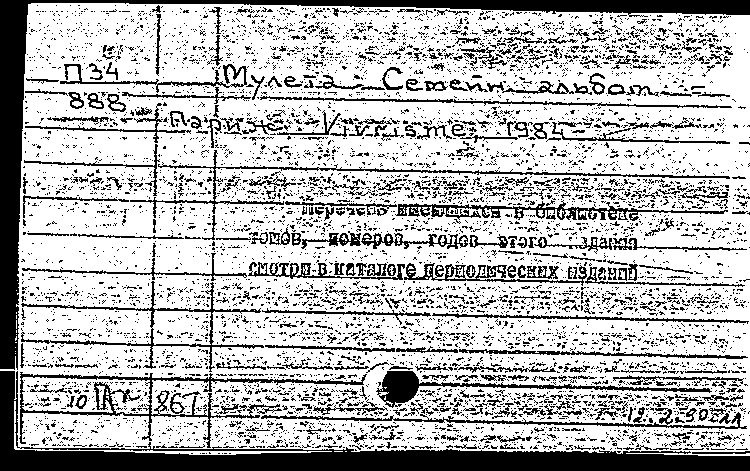 П34
888
Мулета: Семейн. альбом. =
Париж: Vivrisme, 1984-
Перечень имеющихся в библиотеке
томов, номеров, годов этого издания
смотри в каталоге периодических изданий
10 867
12.2.90